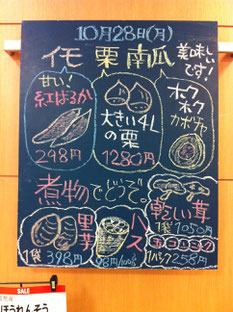 10月28日(月)
イモ 栗 南瓜
美味しいです!
甘い!
紅はるか
298円
大きい4L
の栗
1280円
ホク
ホク
カボチャ
煮物でどうぞ。
里芋
1袋 398円
ハス
98円/100g
乾しい茸
1袋 1050円
1パック258円
SALE
ほうれんそう